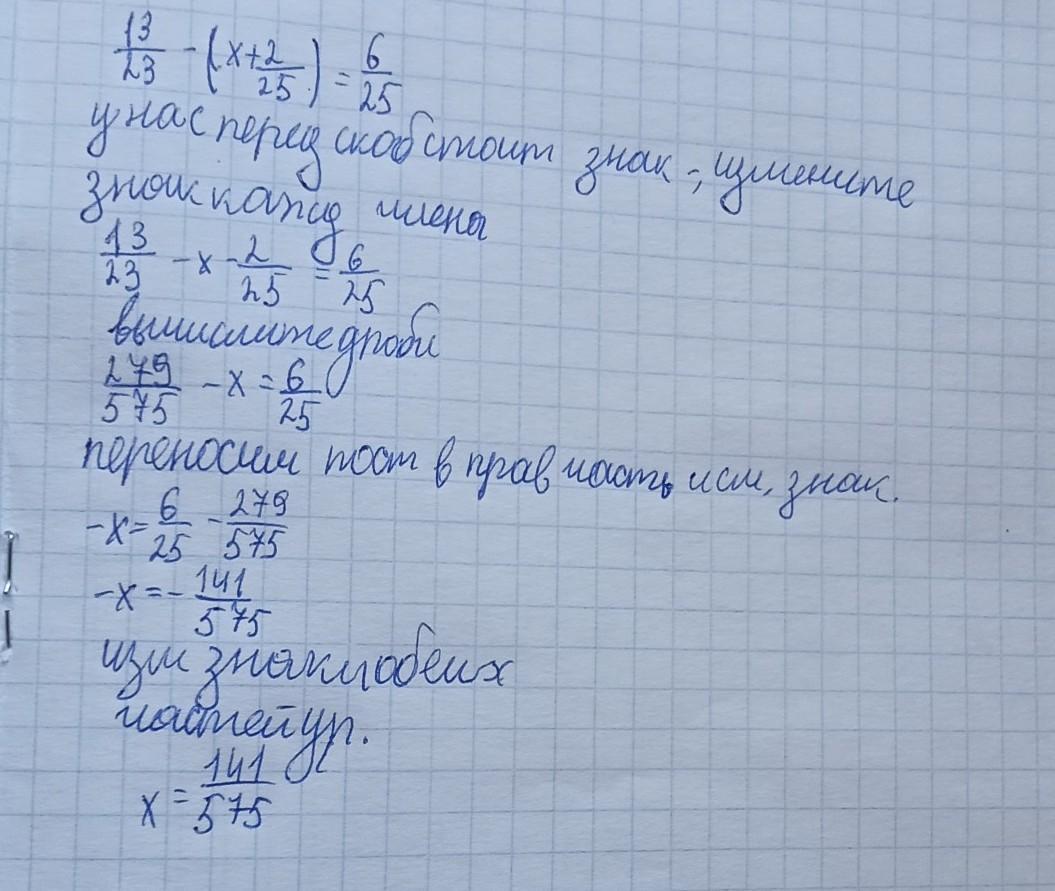 13/23 - (x + 2/25) = 6/25
у нас перед скоб стоит знак -, измените
знак кажд члена
13/23 - x - 2/25 = 6/25
вычислите дроби
279/575 - x = 6/25
переносим пост в прав часть и см. знак.
-x = 6/25 - 279/575
-x = - 141/575
изм знаки обеих
частей ур.
x = 141/575